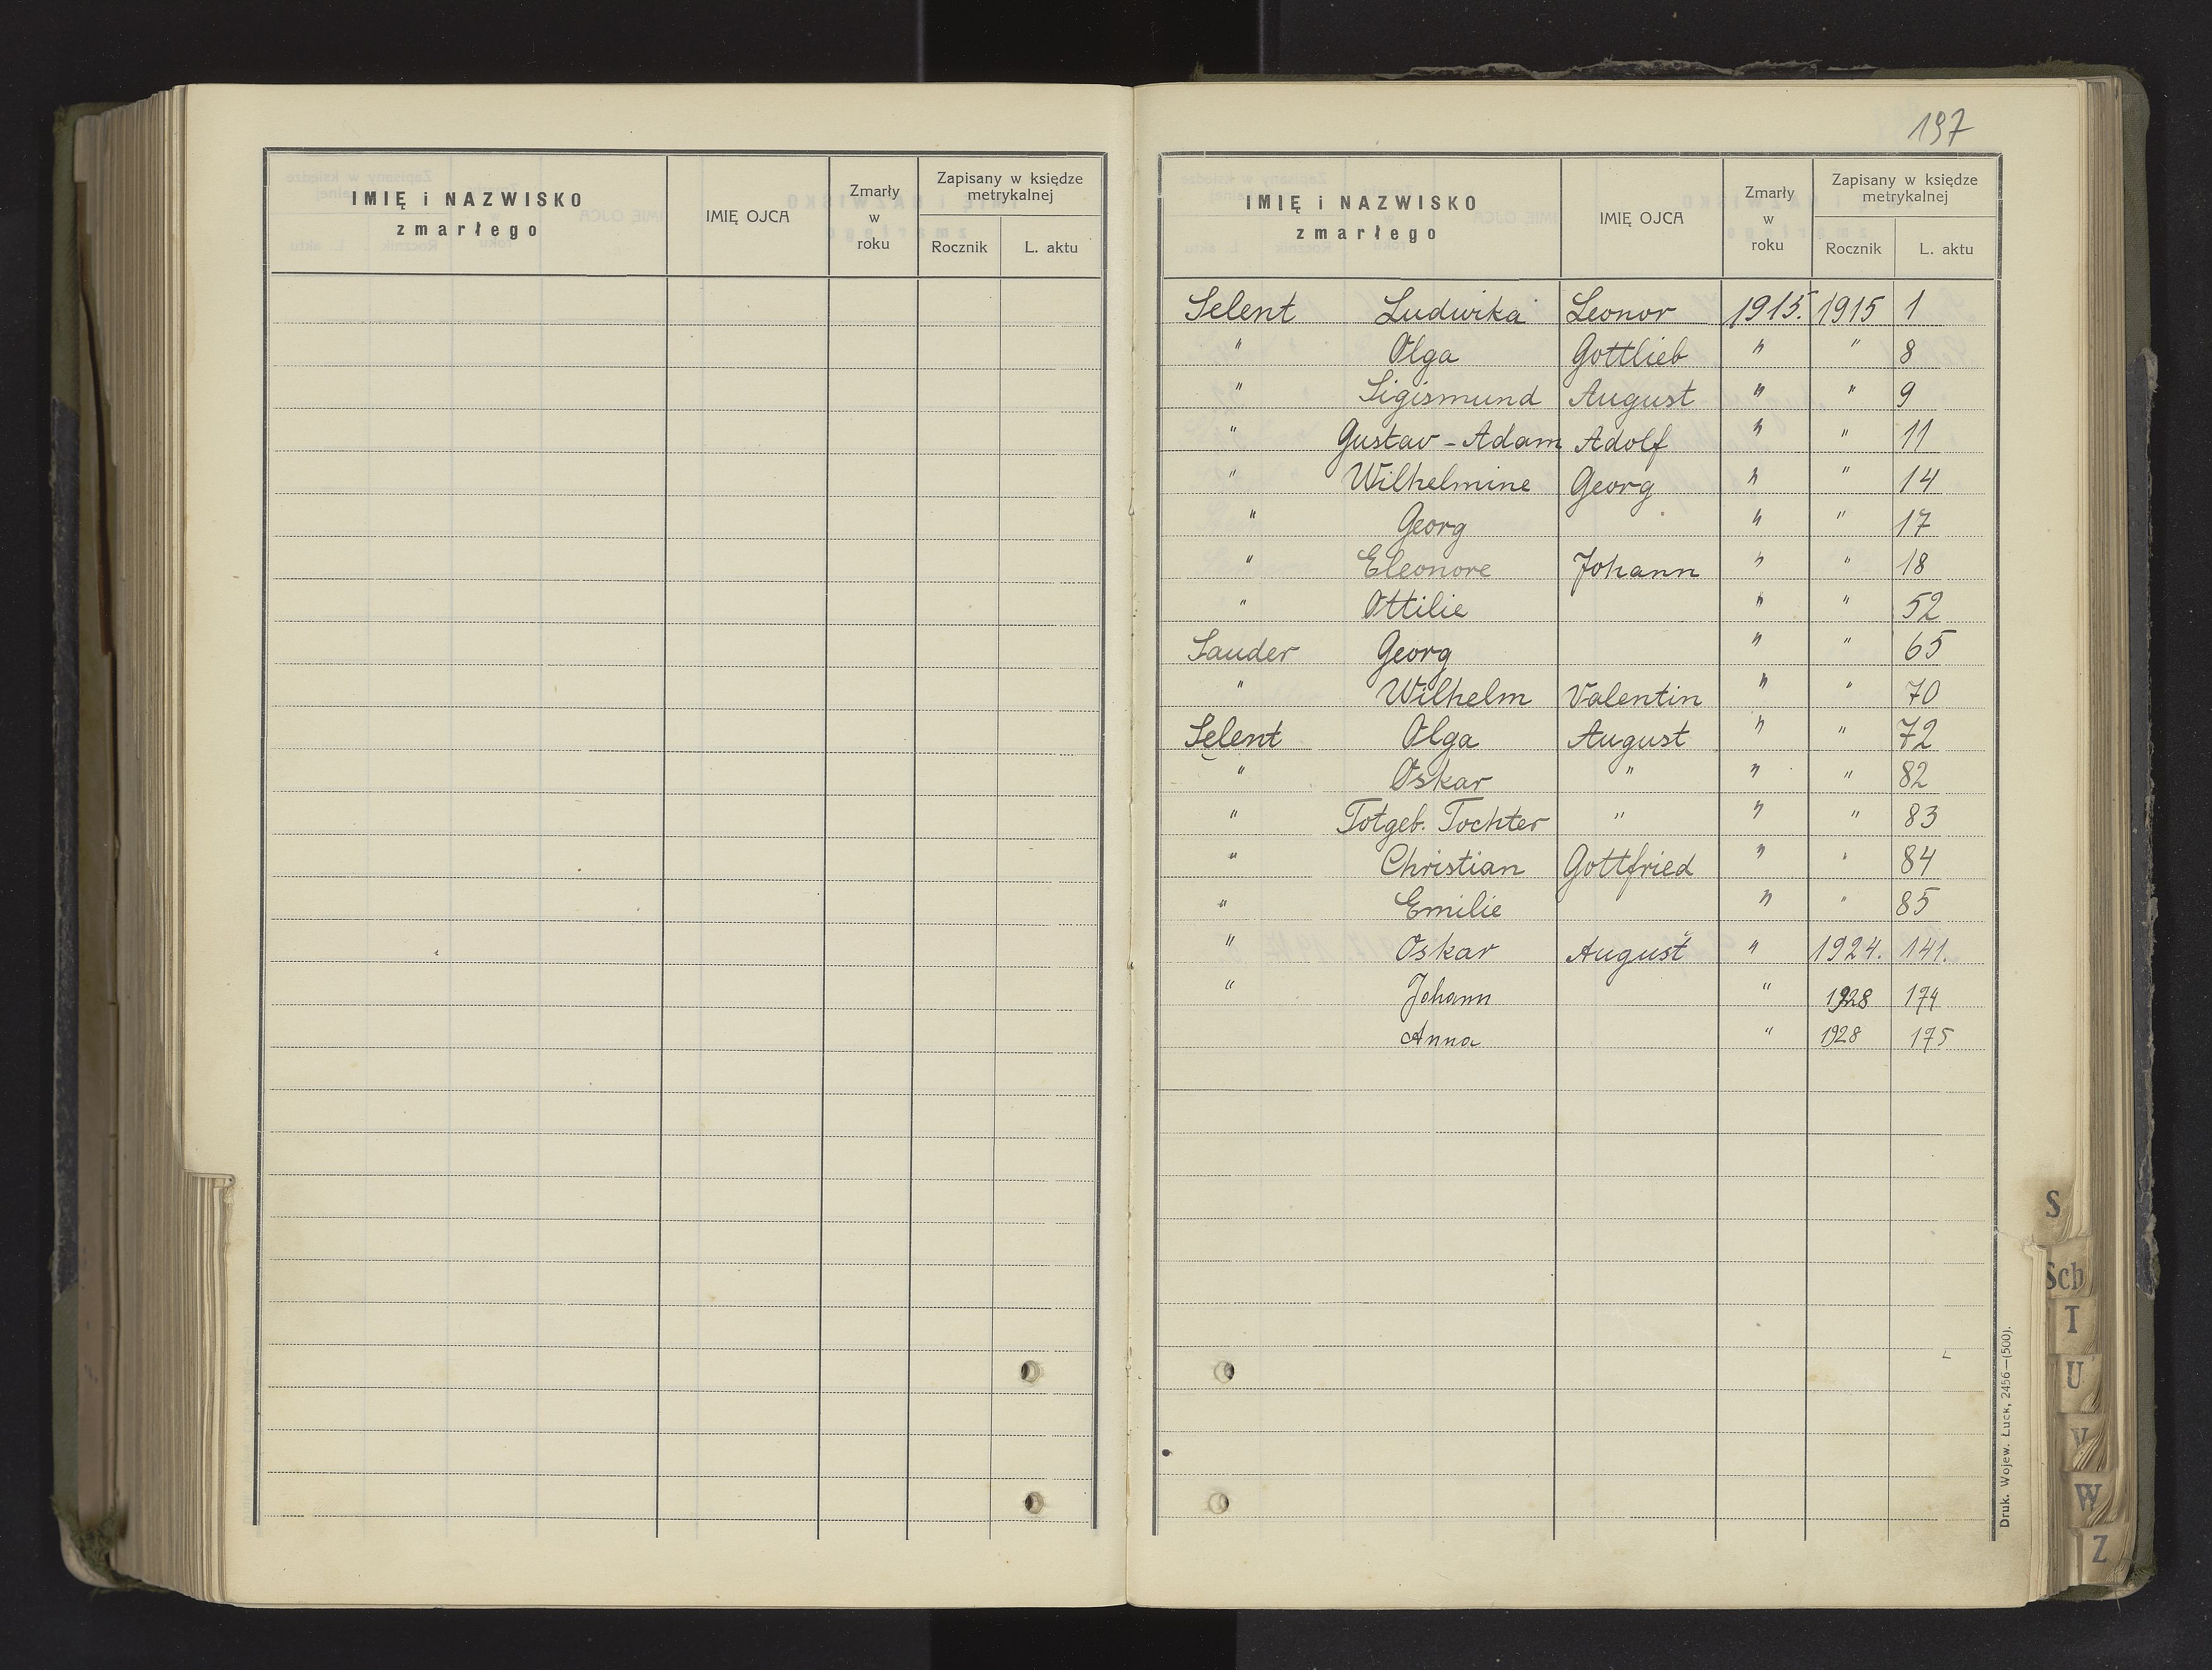 IMIĘ i NAZWISKO
zmarłego
IMIĘ OJCA
Zmarły
w
roku
Zapisany w księdze
metrykalnej
Rocznik
L. aktu
197
IMIĘ i NAZWISKO
zmarłego
IMIĘ OJCA
Zmarły
w
roku
Zapisany w księdze
metrykalnej
Rocznik
L. aktu
Selent Ludwika Leonor 1915. 1915 1
" Olga Gottlieb " " 8
" Sigismund August " " 9
" Gustav - Adam Adolf " " 11
" Wilhelmine Georg " " 14
" Georg " " 17
" Eleonore Johann " " 18
" Ottilie " " 52
Sauder Georg " " 65
" Wilhelm Valentin " " 70
Selent Olga August " " 72
" Oskar " " " 82
" Totgeb. Tochter " " " 83
" Christian Gottfried " " 84
" Emilie " " 85
" Oskar August " 1924. 141.
" Johann " 1928 174
Anna " 1928 175
S
Sch
T
U
V
W
Z
Druk. Wojew. Łuck, 2456—(500).